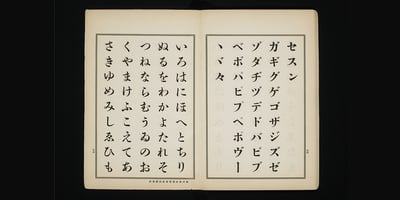 セスン
ガギグゲゴザジズゼ
ゾダヂヅデドバビブ
ベボパピプペポヴー
ヽヾ々
いろはにほへとちり
ぬるをわかよたれそ
つねならむうゐのお
くやまけふこえてあ
さきゆめみしゑひも